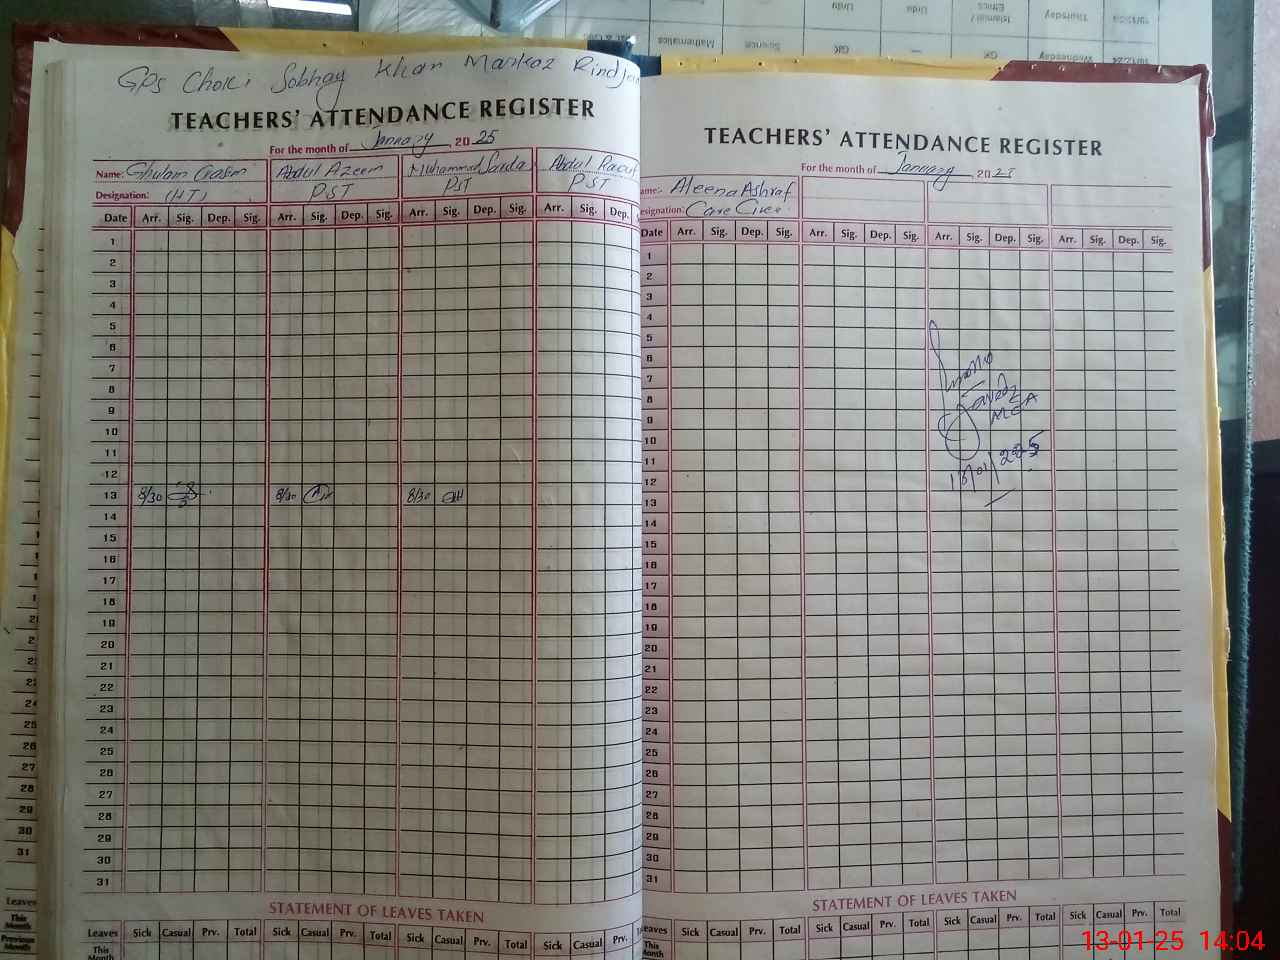 GPS Choki Sobhay Khan Markaz Rind
TEACHERS' ATTENDANCE REGISTER
For the month of January 2025
Name: Ghulam Qasim Abdul Azeem Muhammad Abdul Raouf
Designation: (HT) PST PST PST
Date Arr. Sig. Dep. Sig. Arr. Sig. Dep. Sig. Arr. Sig. Dep. Sig. Arr. Sig. Dep.
1
2
3
4
5
6
7
8
9
10
11
12
13 8/30 8/30 8/30
14
15
16
17
18
19
20
21
22
23
24
25
26
27
28
29
30
31
STATEMENT OF LEAVES TAKEN
Leaves Sick Casual Prv. Total Sick Casual Prv. Total Sick Casual Prv. Total Sick Casual Prv.
This
Month
TEACHERS' ATTENDANCE REGISTER
For the month of January 2025
ame: Aleena Ashraf
esignation: Care Giver
Date Arr. Sig. Dep. Sig. Arr. Sig. Dep. Sig. Arr. Sig. Dep. Sig. Arr. Sig. Dep. Sig.
1
2
3
4
5
6
7
8
9
10
11
12
13
14
15
16
17
18
19
20
21
22
23
24
25
26
27
28
29
30
31
Javed
MEA
13/01/2025
STATEMENT OF LEAVES TAKEN
eaves Sick Casual Prv. Total Sick Casual Prv. Total Sick Casual Prv. Total Sick Casual Prv. Total
This
Month
24
25
26
27
28
29
30
31
Leaves
This
Month
Previous
Month
Thursday Islamiat / Ethics Urdu Urdu
Wednesday GK — GK Science Mathematics
13-01-25 14:04